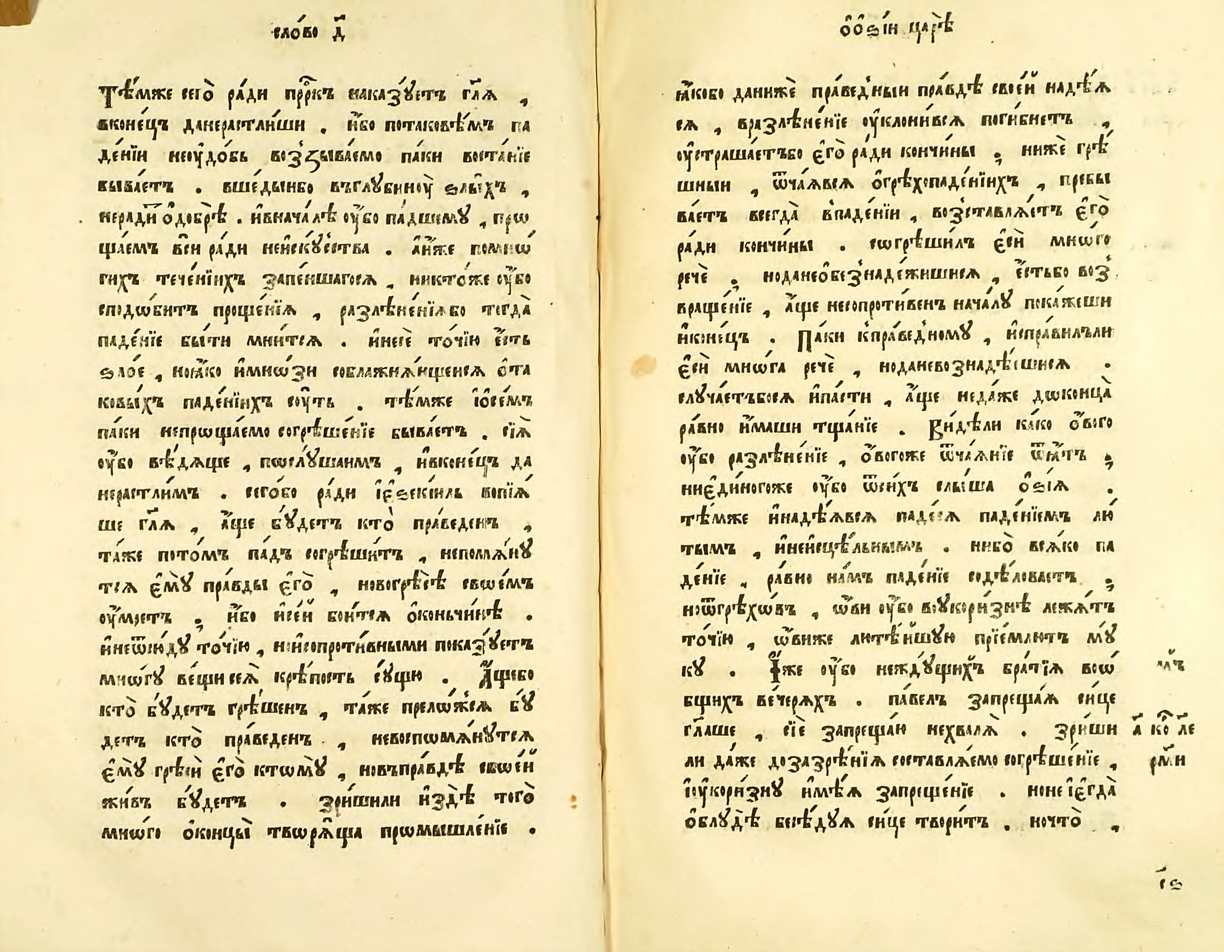 сло́во д҃
Тѣ́мже сего̀ ра́ди прⷪ҇ркъ наказꙋ́етъ гл҃ѧ ,
вконе́цъ данерастлиши . и҆́бо потаковѣ́мъ па
де́нїи неꙋдо́бь возⸯзыва́емо па́ки воста́нїе
быва́етъ . вше́дыибо въглꙋбинꙋ̀ ѕлы́хъ ,
неради́ти ѻ҆добрѣ̀ . и҆внача́лѣ ᲂу҆́бо па́дшемꙋ , прѡ
ща́емъ всѝ ра́ди неи҆скꙋ́сства . а҆и҆́же помнѡ
гихъ тече́нїихъ запе́ншагосѧ , никто́же ᲂу҆́бо
сподѡ́битъ проще́нїѧ , разлѣне́нїѧбо тогда̀
паде́нїе бы́ти мни́тсѧ . и҆несѐ то́чїю є҆́сть
ѕло́е , ноꙗ҆́ко и҆мнѡ́зи соблажнѧ́ющеисѧ ѻ҆та
ковы́хъ паде́нїихъ сꙋ́ть . тѣ́мже і҆ѻ҆се́мъ
па́ки непрѡща́емо согрѣше́нїе быва́етъ . сїѧ̀
ᲂу҆́бо вѣ́дѧще , послꙋ́шаимъ , и҆вконе́цъ да
нерастли́мъ . сегѡ́бо ра́ди і҆є҆ѕекі́иль вопїѧ́
ше гл҃ѧ , а҆́ще бꙋ́детъ кто̀ пра́веденъ ,
та́же пото́мъ па́дъ согрѣши́тъ , непомѧнꙋ́
тсѧ є҆мꙋ̀ пра́вды є҆гѡ̀ , новогрѣсѣ̀ свѡе́мъ
ᲂу҆́мретъ . и҆́бо и҆се́й бои́тсѧ ѻ҆коньчи́нѣ .
и҆неѿѡю́дꙋ то́чїю , ноисопроти́вными показꙋ́етъ
мнѡ́гꙋ ве́щисеѧ̀ крѣ́пость сꙋ́щю . А҆́щебо
кто̀ бꙋ́детъ грѣ́шенъ , та́же прело́жсѧ бꙋ́
детъ кто̀ пра́веденъ , невоспомѧнꙋ́тсѧ
є҆мꙋ̀ грѣсѝ є҆гѡ̀ ктомꙋ̀ , новъпра́вдѣ свѡе́й
жи́въ бꙋ́детъ . зри́шили и҆здѣ̀ того̀
мно́го ѻ҆концы̀ творѧ́ща промышле́нїе .
ѻ҆ ѻ҆ѕі́и царѣ̀
ꙗ҆́кобо данижѐ пра́ведныи пра́вдѣ свое́й надѣ́ѧ
сѧ , вразлѣне́нїе ᲂу҆клони́всѧ поги́бнетъ ,
ᲂу҆страша́етъбо є҆гѡ̀ ра́ди кончи́ны ; нижѐ грѣ́
шныи , ѿча́ѧвсѧ ѻ҆грѣхопаде́нїихъ , пребы
ва́етъ всегда̀ впаде́нїи , возⸯставлѧ́етъ є҆гѡ̀
ра́ди кончи́ны . согрѣши́лъ є҆сѝ мно́го
речѐ , ноданеѻ҆безнаде́жишисѧ , є҆́стьбо воз
враще́нїе , а҆́ще несопроти́венъ нача́лꙋ пока́жеши
и҆коне́цъ . Па́ки кпра́ведномꙋ , и҆спра́вилъли
є҆сѝ мно́га речѐ , ноданевознадѣ́ешисѧ .
слꙋча́етъбосѧ и҆па́сти , а҆́ще неда́же доконца̀
ра́вно и҆́маши тща́нїе . Ви́дѣли ка́ко ѻ҆́вого
ᲂу҆́бо разлѣне́нїе , ѻ҆́вогоже ѿча́ѧнїе ѿѧ́тъ ;
ниє҆ди́ногоже ᲂу҆́бо ѿси́хъ слы́ша ѻ҆ѕі́ѧ .
тѣ́мже и҆надѣ́ѧвсѧ паде́сѧ паде́нїемъ лю́
тымъ , и҆неисцѣ́льнымъ . нибо̀ всѧ́ко па
де́нїе , ра́вно на́мъ паде́нїе содѣ́ловаетъ ;
ноѿгрѣхѡ́въ , ѡ҆́ви ᲂу҆́бо воᲂу҆кори́знѣ лежа́тъ
то́чїю , ѡ҆́виже лютѣ́йшую прїе́млютъ мꙋ́
кꙋ . І҆́же ᲂу҆́бо неждꙋ́щихъ бра́тїѧ воѡ҆́
бщихъ вече́рѧхъ . па́велъ запреща́ѧ си́це
гл҃аше , сїѐ запреща́ю нехвалѧ̀ . зри́ши
ли да́же дозазрѣ́нїѧ составлѧ́емо согрѣше́нїе ,
і҆ᲂу҆кори́знꙋ и҆мѣ́ѧ запреще́нїе . ноне і҆є҆гда̀
ѻ҆блꙋ́дѣ бесѣ́дꙋѧ си́це твори́тъ . но̀что̀ ,
а҃ ко ле